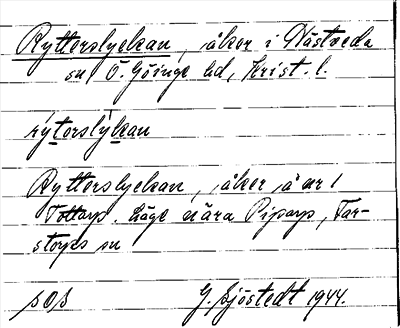 Rytterslyckan, åker i Nästveda
sn Ö. Göinge hd, Krist. l.
rýterslỳkan
Ryttershyckan, åker å nr 1
Tottarp. Läge nära Piparp, Far-
storps sn
sos G. Sjöstedt 1944.